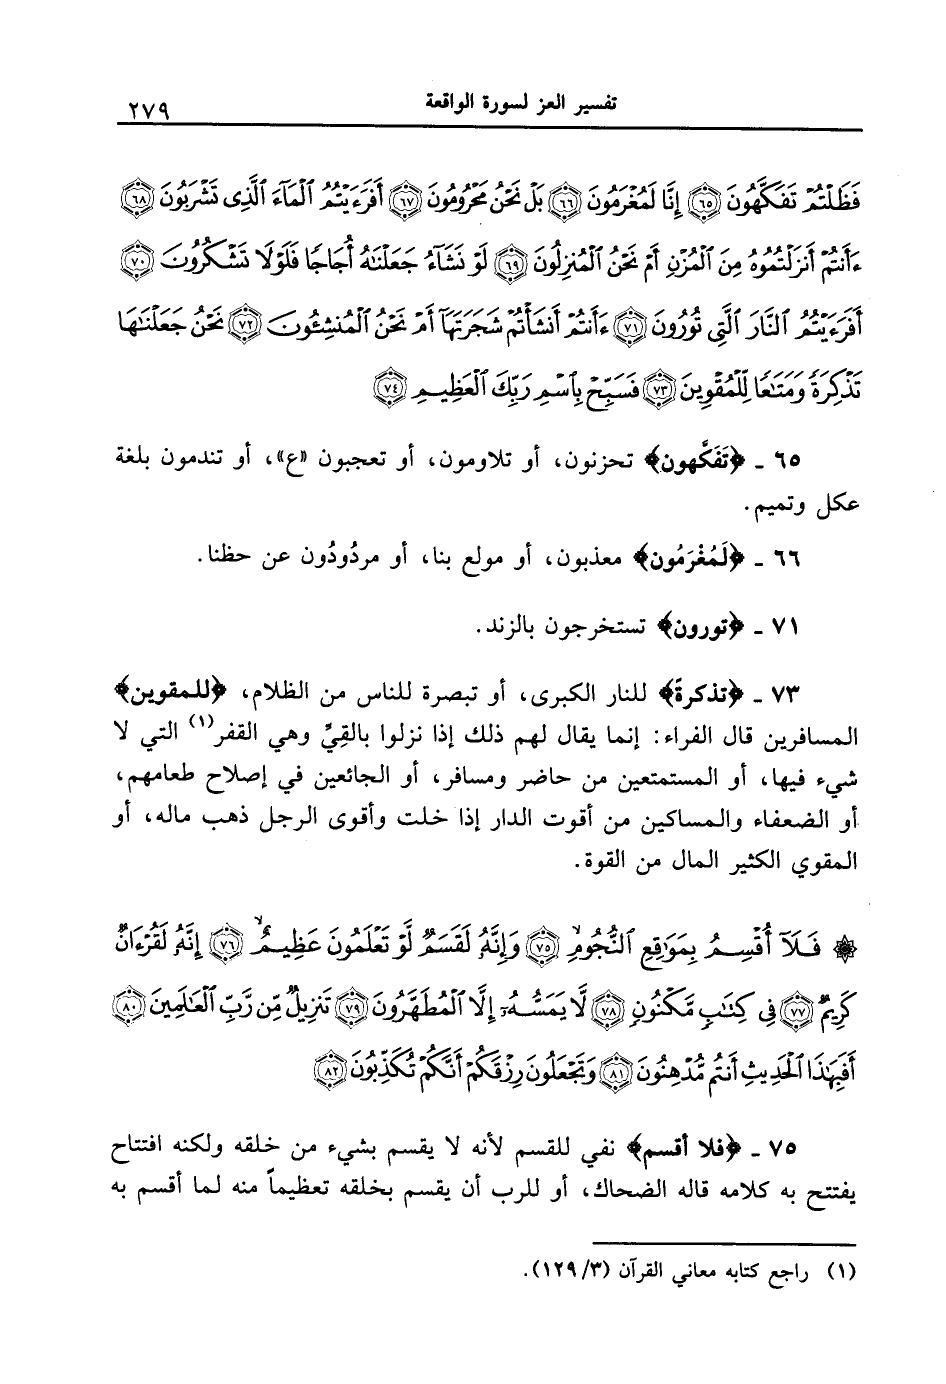 تفسير العز لسورة الواقعة ٢٧٩
فَظَلْتُمْ تَفَكَّهُونَ ﴿٦٥﴾ إِنَّا لَمُغْرَمُونَ ﴿٦٦﴾ بَلْ نَحْنُ مَحْرُومُونَ ﴿٦٧﴾ أَفَرَءَيْتُمُ الْمَآءَ الَّذِى تَشْرَبُونَ ﴿٦٨﴾
ءَأَنتُمْ أَنزَلْتُمُوهُ مِنَ الْمُزْنِ أَمْ نَحْنُ الْمُنزِلُونَ ﴿٦٩﴾ لَوْ نَشَآءُ جَعَلْنَٰهُ أُجَاجًا فَلَوْلَا تَشْكُرُونَ ﴿٧٠﴾
أَفَرَءَيْتُمُ النَّارَ الَّتِى تُورُونَ ﴿٧١﴾ ءَأَنتُمْ أَنشَأْتُمْ شَجَرَتَهَآ أَمْ نَحْنُ الْمُنشِـُٔونَ ﴿٧٢﴾ نَحْنُ جَعَلْنَٰهَا
تَذْكِرَةً وَمَتَٰعًا لِّلْمُقْوِينَ ﴿٧٣﴾ فَسَبِّحْ بِاسْمِ رَبِّكَ الْعَظِيمِ ﴿٧٤﴾
٦٥ ـ ﴿تَفَكَّهون﴾ تحزنون، أو تلاومون، أو تعجبون «ع»، أو تندمون بلغة
عكل وتميم.
٦٦ ـ ﴿لَمُغْرَمُون﴾ معذبون، أو مولع بنا، أو مردُودُون عن حظنا.
٧١ ـ ﴿تورون﴾ تستخرجون بالزند.
٧٣ ـ ﴿تذكرةً﴾ للنار الكبرى، أو تبصرة للناس من الظلام، ﴿للمقوين﴾
المسافرين قال الفراء: إنما يقال لهم ذلك إذا نزلوا بالقِيِّ وهي القفر(١) التي لا
شيء فيها، أو المستمتعين من حاضر ومسافر، أو الجائعين في إصلاح طعامهم،
أو الضعفاء والمساكين من أقوت الدار إذا خلت وأقوى الرجل ذهب ماله، أو
المقوي الكثير المال من القوة.
۞ فَلَآ أُقْسِمُ بِمَوَٰقِعِ النُّجُومِ ﴿٧٥﴾ وَإِنَّهُۥ لَقَسَمٌ لَّوْ تَعْلَمُونَ عَظِيمٌ ﴿٧٦﴾ إِنَّهُۥ لَقُرْءَانٌ
كَرِيمٌ ﴿٧٧﴾ فِى كِتَٰبٍ مَّكْنُونٍ ﴿٧٨﴾ لَّا يَمَسُّهُۥٓ إِلَّا الْمُطَهَّرُونَ ﴿٧٩﴾ تَنزِيلٌ مِّن رَّبِّ الْعَٰلَمِينَ ﴿٨٠﴾
أَفَبِهَٰذَا الْحَدِيثِ أَنتُم مُّدْهِنُونَ ﴿٨١﴾ وَتَجْعَلُونَ رِزْقَكُمْ أَنَّكُمْ تُكَذِّبُونَ ﴿٨٢﴾
٧٥ ـ ﴿فلا أقسم﴾ نفي للقسم لأنه لا يقسم بشيء من خلقه ولكنه افتتاح
يفتتح به كلامه قاله الضحاك، أو للرب أن يقسم بخلقه تعظيماً منه لما أقسم به
(١) راجع كتابه معاني القرآن (٣/١٢٩).